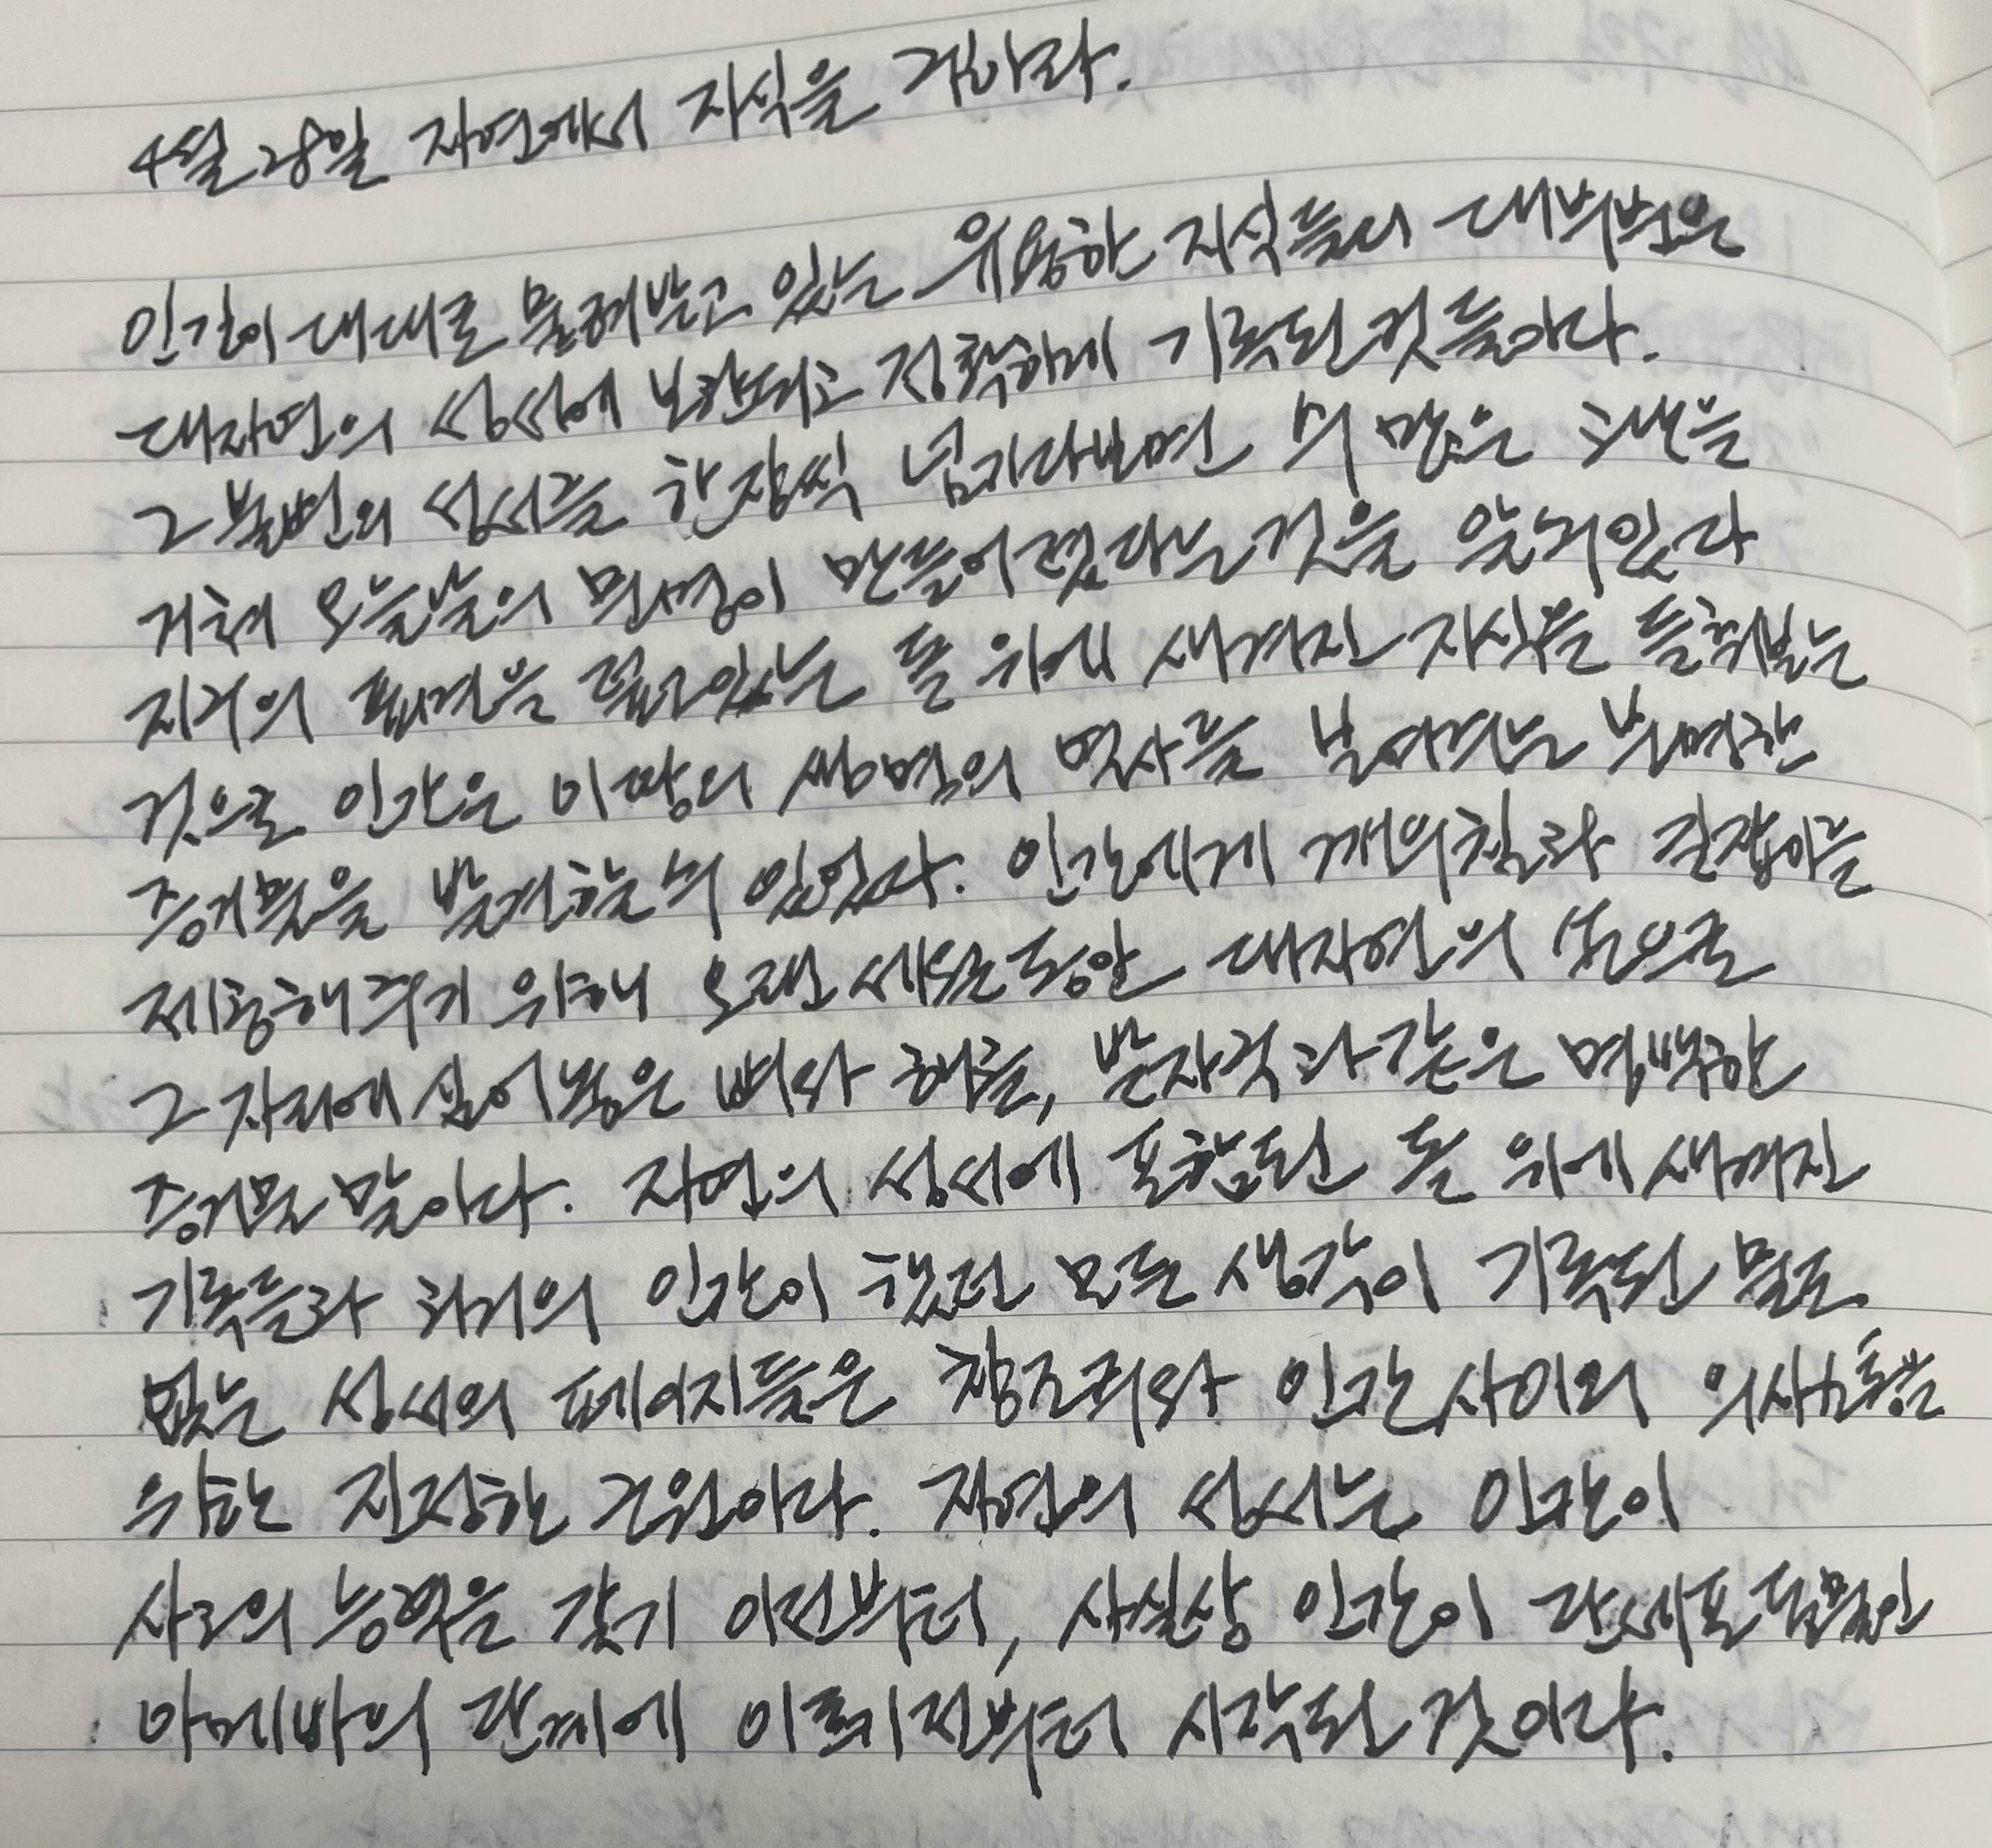 4월 28일 자연에서 지식을 구하라.
인간이 대대로 물려받고 있는 유용한 지식들의 대부분은
대자연의 성서에 보관되고 정확하게 기록된 것들이다.
그 불변의 성서를 한장씩 넘기다보면 수 많은 세월을
거쳐 오늘날의 문명이 만들어졌다는것을 알 수 있다
지구의 표면을 덮고있는 돌 위에 새겨진 지식을 들춰보는
것으로 인간은 이 땅의 생명의 역사를 보여주는 분명한
증거물을 발견할 수 있었다. 인간에게 개의침과 길잡이를
제공해주기 위해 오랜 세월동안 대자연의 손으로
그 자리에 심어놓은 뼈와 해골, 발자국과 같은 명백한
증거물 말이다. 자연의 성서에 포함된 돌 위에 새겨진
기록들과 과거의 인간이 했던 모든 생각이 기록된 별도
없는 성서의 페이지들은 창조주와 인간사이의 의사소통을
위한 진정한 근원이다. 자연의 성서는 인간이
사고의 능력을 갖기 이전부터, 사실상 인간이 단세포 동물인
아메바의 단계에 이르기 전부터 시작된 것이다.